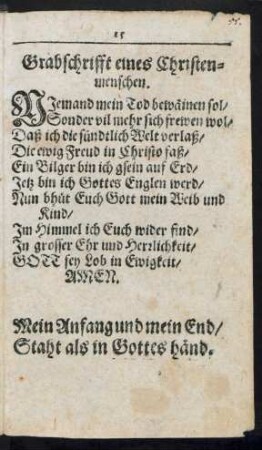 15
Grabschrifft eines Christen-
menschen.
NJemand mein Tod bewäinen sol/
Sonder vil mehr sich frewen wol/
Daß ich die sündtlich Welt verlaß/
Die ewig Freud in Christo faß/
Ein Bilger bin ich gsein auf Erd/
Jetz bin ich Gottes Englen werd/
Nun bhüt Euch Gott mein Weib und
Kind/
Im Himmel ich Euch wider find/
In grosser Ehr und Herrlichkeit/
GOTT sey Lob in Ewigkeit/
AMEN.
Mein Anfang und mein End/
Staht als in Gottes händ.